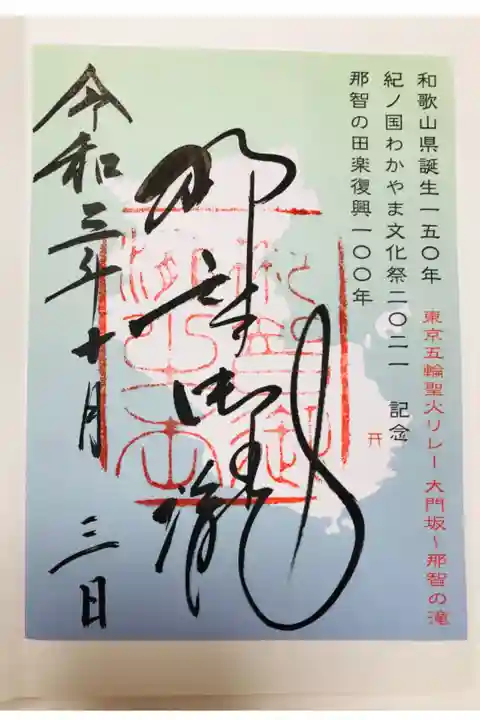 和歌山県誕生一五〇年
紀ノ国わかやま文化祭二〇二一 記念
那智の田楽復興一〇〇年
東京五輪聖火リレー 大門坂~那智の滝
那智御瀧
令和三年十月 三日